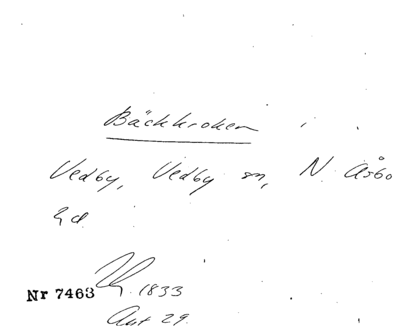 Bäckkroken
Vedby, Vedby sn, N. Åsbo
hd
Nr 7463 1833
Aut 29